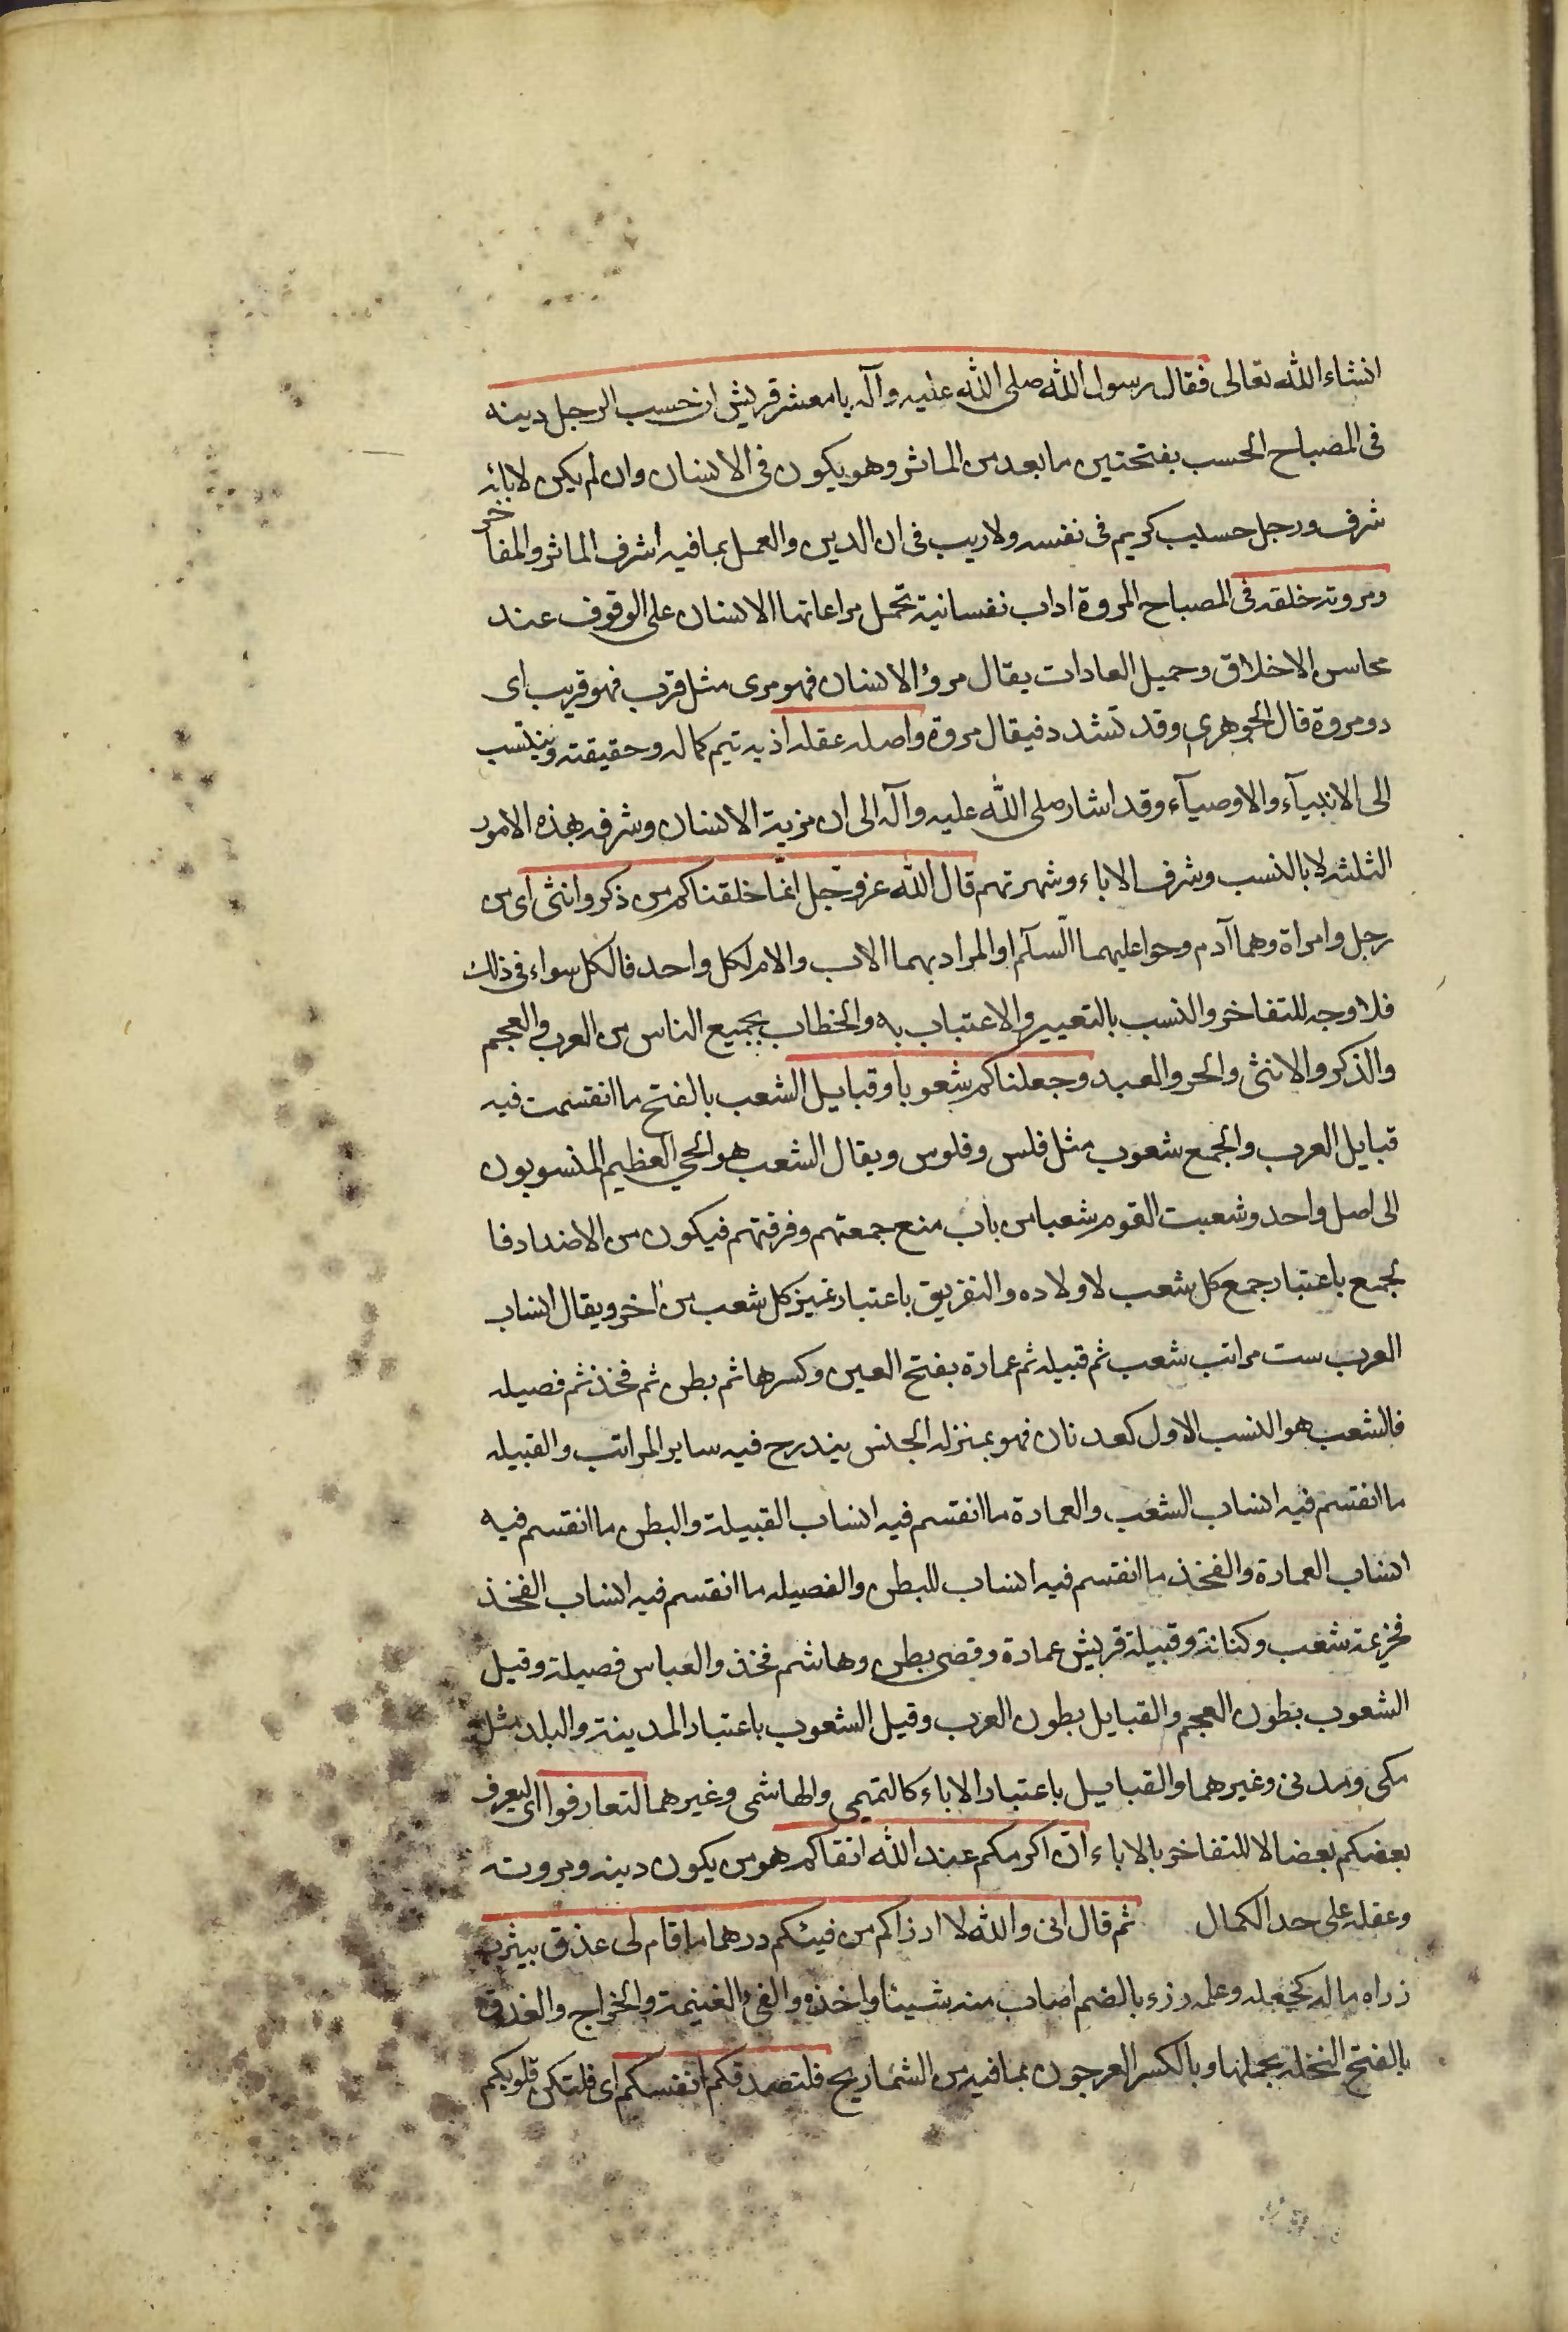 انشاء الله تعالى فقال رسول الله صلى الله عليه وآله يا معشر قريش ان حسب الرجل دينه
فى المصباح الحسب بفتحتين ما يعد من الماثر وهو يكون فى الانسان وان لم يكن لابائه
شرف ورجل حسيب كريم فى نفسه ولا ريب فى ان الدين والعمل بما فيه اشرف الماثر والمفاخر
ومروته خلقه فى المصباح المروة اداب نفسانية تحمل مراعاتها الانسان على الوقوف عند
محاسن الاخلاق وجميل العادات يقال مرؤ الانسان فهو مرى مثل قرب فهو قريب اى
ذو مروة قال الجوهرى وقد تشدد فيقال مروة واصله عقله اذ به تيم كماله وحقيقته وينتسب
الى الانبيآء والاوصيآء وقد اشار صلى الله عليه وآله الى ان مزية الانسان وشرفه بهذه الامور
الثلثه لا بالنسب وشرف الاباء وشهرتهم قال الله عز وجل انما خلقناكم من ذكر وانثى اى من
رجل وامراة وهما آدم وحوا عليهما السلام او المراد بهما الاب والام لكل واحد فالكل سواء فى ذلك
فلا وجه للتفاخر والنسب بالتعيير والاعتباب به والخطاب بجميع الناس من العرب والعجم
والذكر والانثى والحر والعبد وجعلناكم شعوبا وقبايل الشعب بالفتح ما انقسمت فيه
قبايل العرب والجمع شعوب مثل فلس وفلوس ويقال الشعب هو الحى العظيم المنسوبون
الى اصل واحد وشعبت القوم شعبا من باب منع جمعتهم وفرقتهم فيكون من الاضداد فا
لجمع باعتبار جمع كل شعب لاولاده والتفريق باعتبار تميز كل شعب من اخر ويقال انساب
العرب ست مراتب شعب ثم قبيله ثم عمارة بفتح العين وكسرها ثم بطن ثم فخذ ثم فصيله
فالشعب هو النسب الاول كعدنان فهو بمنزله الجنس يندرج فيه ساير المراتب والقبيله
ما انقسم فيه انساب الشعب والعمارة ما انقسم فيه انساب القبيلة والبطن ما انقسم فيه
انساب العمارة والفخذ ما انقسم فيه انساب للبطن والفصيله ما انقسم فيه انساب الفخذ
فخزيمة شعب وكنانة وقبيلة قريش عمارة وقصى بطن وهاشم فخذ والعباس فصيلة وقيل
الشعوب بطون العجم والقبايل بطون العرب وقيل الشعوب باعتبار المدينة والبلد مثل
مكى ومدنى وغيرهما والقبايل باعتبار الاباء كالتميمى والهاشمى وغيرهما لتعارفوا اى ليعرف
بعضكم بعضا لا للتفاخر بالاباء ان اكرمكم عند الله اتقاكم هو من يكون دينه ومروته
وعقله على حد الكمال ثم قال انى والله لا ارزاكم من فيئكم درهما ما قام لى عذق بيثرب
زراه ماله كجعله وعلمه رزء بالضم اصاب منه شيئا واخذه والفئ الغنيمة والخراج والعذق
بالفتح النخله بحملها وبالكسر العرجون بما فيه من الشماريخ فلتصدقكم انفسكم اى فلتكن قلوبكم